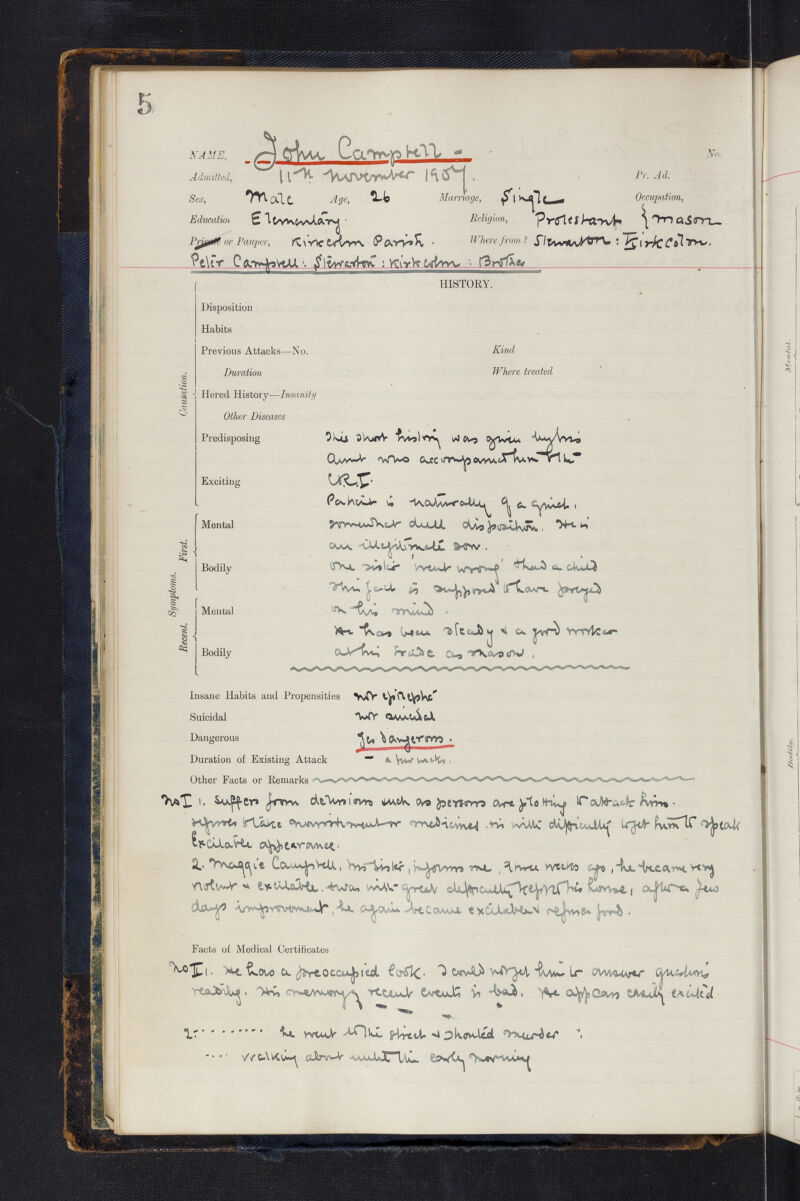 5
NAME, John Campbell - No.
Admitted, 11th November 1907. Pr. Ad.
Sex, Male Age, 26 Marriage, Single Occupation,
Education Elementary. Religion, Protestant { Mason
Private or Pauper, Kirkcolm Parish. Where from? Stewarton : Kirkcolm.
Peter Campbell : Stewarton : Kirkcolm : Brother
HISTORY.
Disposition
Habits
Previous Attacks—No. Kind
Duration Where treated
Hered History—Insanity
Other Diseases
Causation.
Predisposing This short history was given by his
Aunt who accompanied him to the
Exciting C.R.I.
Patient is naturally of a quiet,
Symptoms. First. Recent.
Mental somewhat dull disposition. He is
an illegitimate son.
Bodily One sister 'went wrong' & had a child
This fact is supposed to have preyed
Mental on his mind.
He has been steady & a good worker
Bodily at his trade as mason.
Insane Habits and Propensities Not epileptic
Suicidal Not suicidal
Dangerous Yes dangerous.
Duration of Existing Attack - a few weeks.
Other Facts or Remarks
No I 1. Suffers from delusions such as persons are plotting to attack him.
refuses to take nourishment or medicines. tis with difficulty to get him to speak
Excitable appearance.
2. Maggie Campbell, his sister, informs me, three weeks ago, he became very
violent & excitable. twas with great difficulty kept to his house, after a few
days improvement, he again became excitable & refuses food.
Facts of Medical Certificates
No II 1. He has a preoccupied look. I could not get him to answer questions
readily. His memory of recent events is bad. He appears easily excited.
2. he went to the street & shouted murder
walking about until the early morning
Mental.
Bodily.